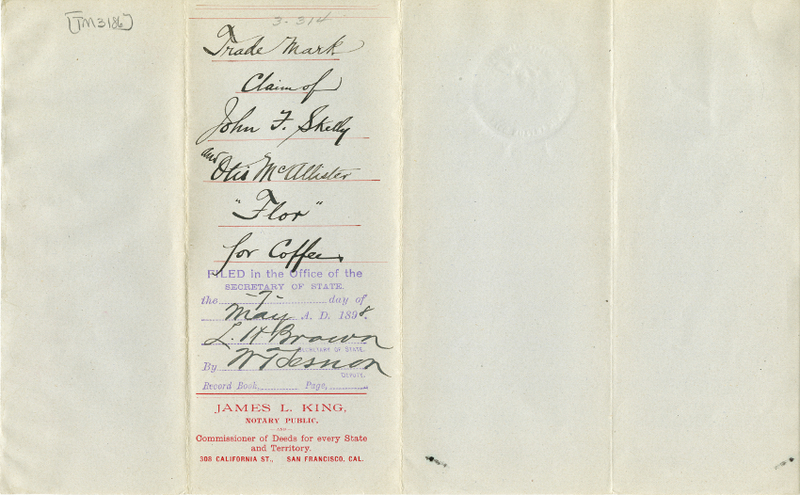 [TM3186]
3.314
Trade Mark
Claim of
John F. Skelly
and Otis McAllister
"Flor"
for Coffee.
FILED in the Office of the
SECRETARY OF STATE.
the 7 day of
May A. D. 1898.
L. H. Brown
SECRETARY OF STATE.
By
DEPUTY.
Record Book, Page,
JAMES L. KING,
NOTARY PUBLIC,
AND
Commissioner of Deeds for every State
and Territory.
308 CALIFORNIA ST., SAN FRANCISCO, CAL.